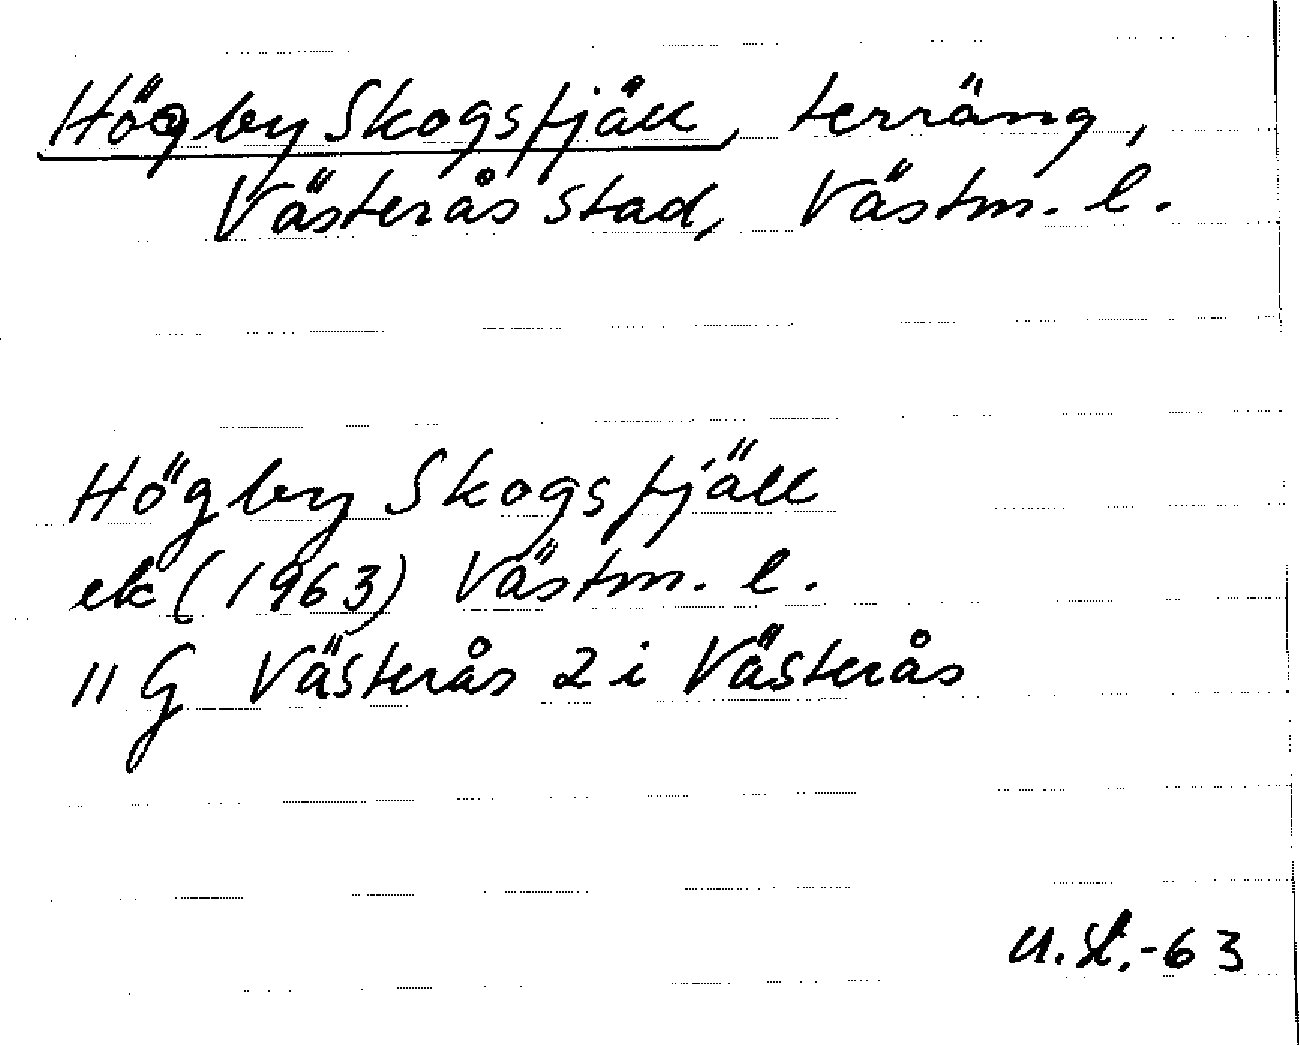 Högby Skogsfjäll, terräng,
Västerås stad, Västm. l.
Högby Skogsfjäll
ek (1963) Västm. l.
11 G Västerås 2 i Västerås
-63